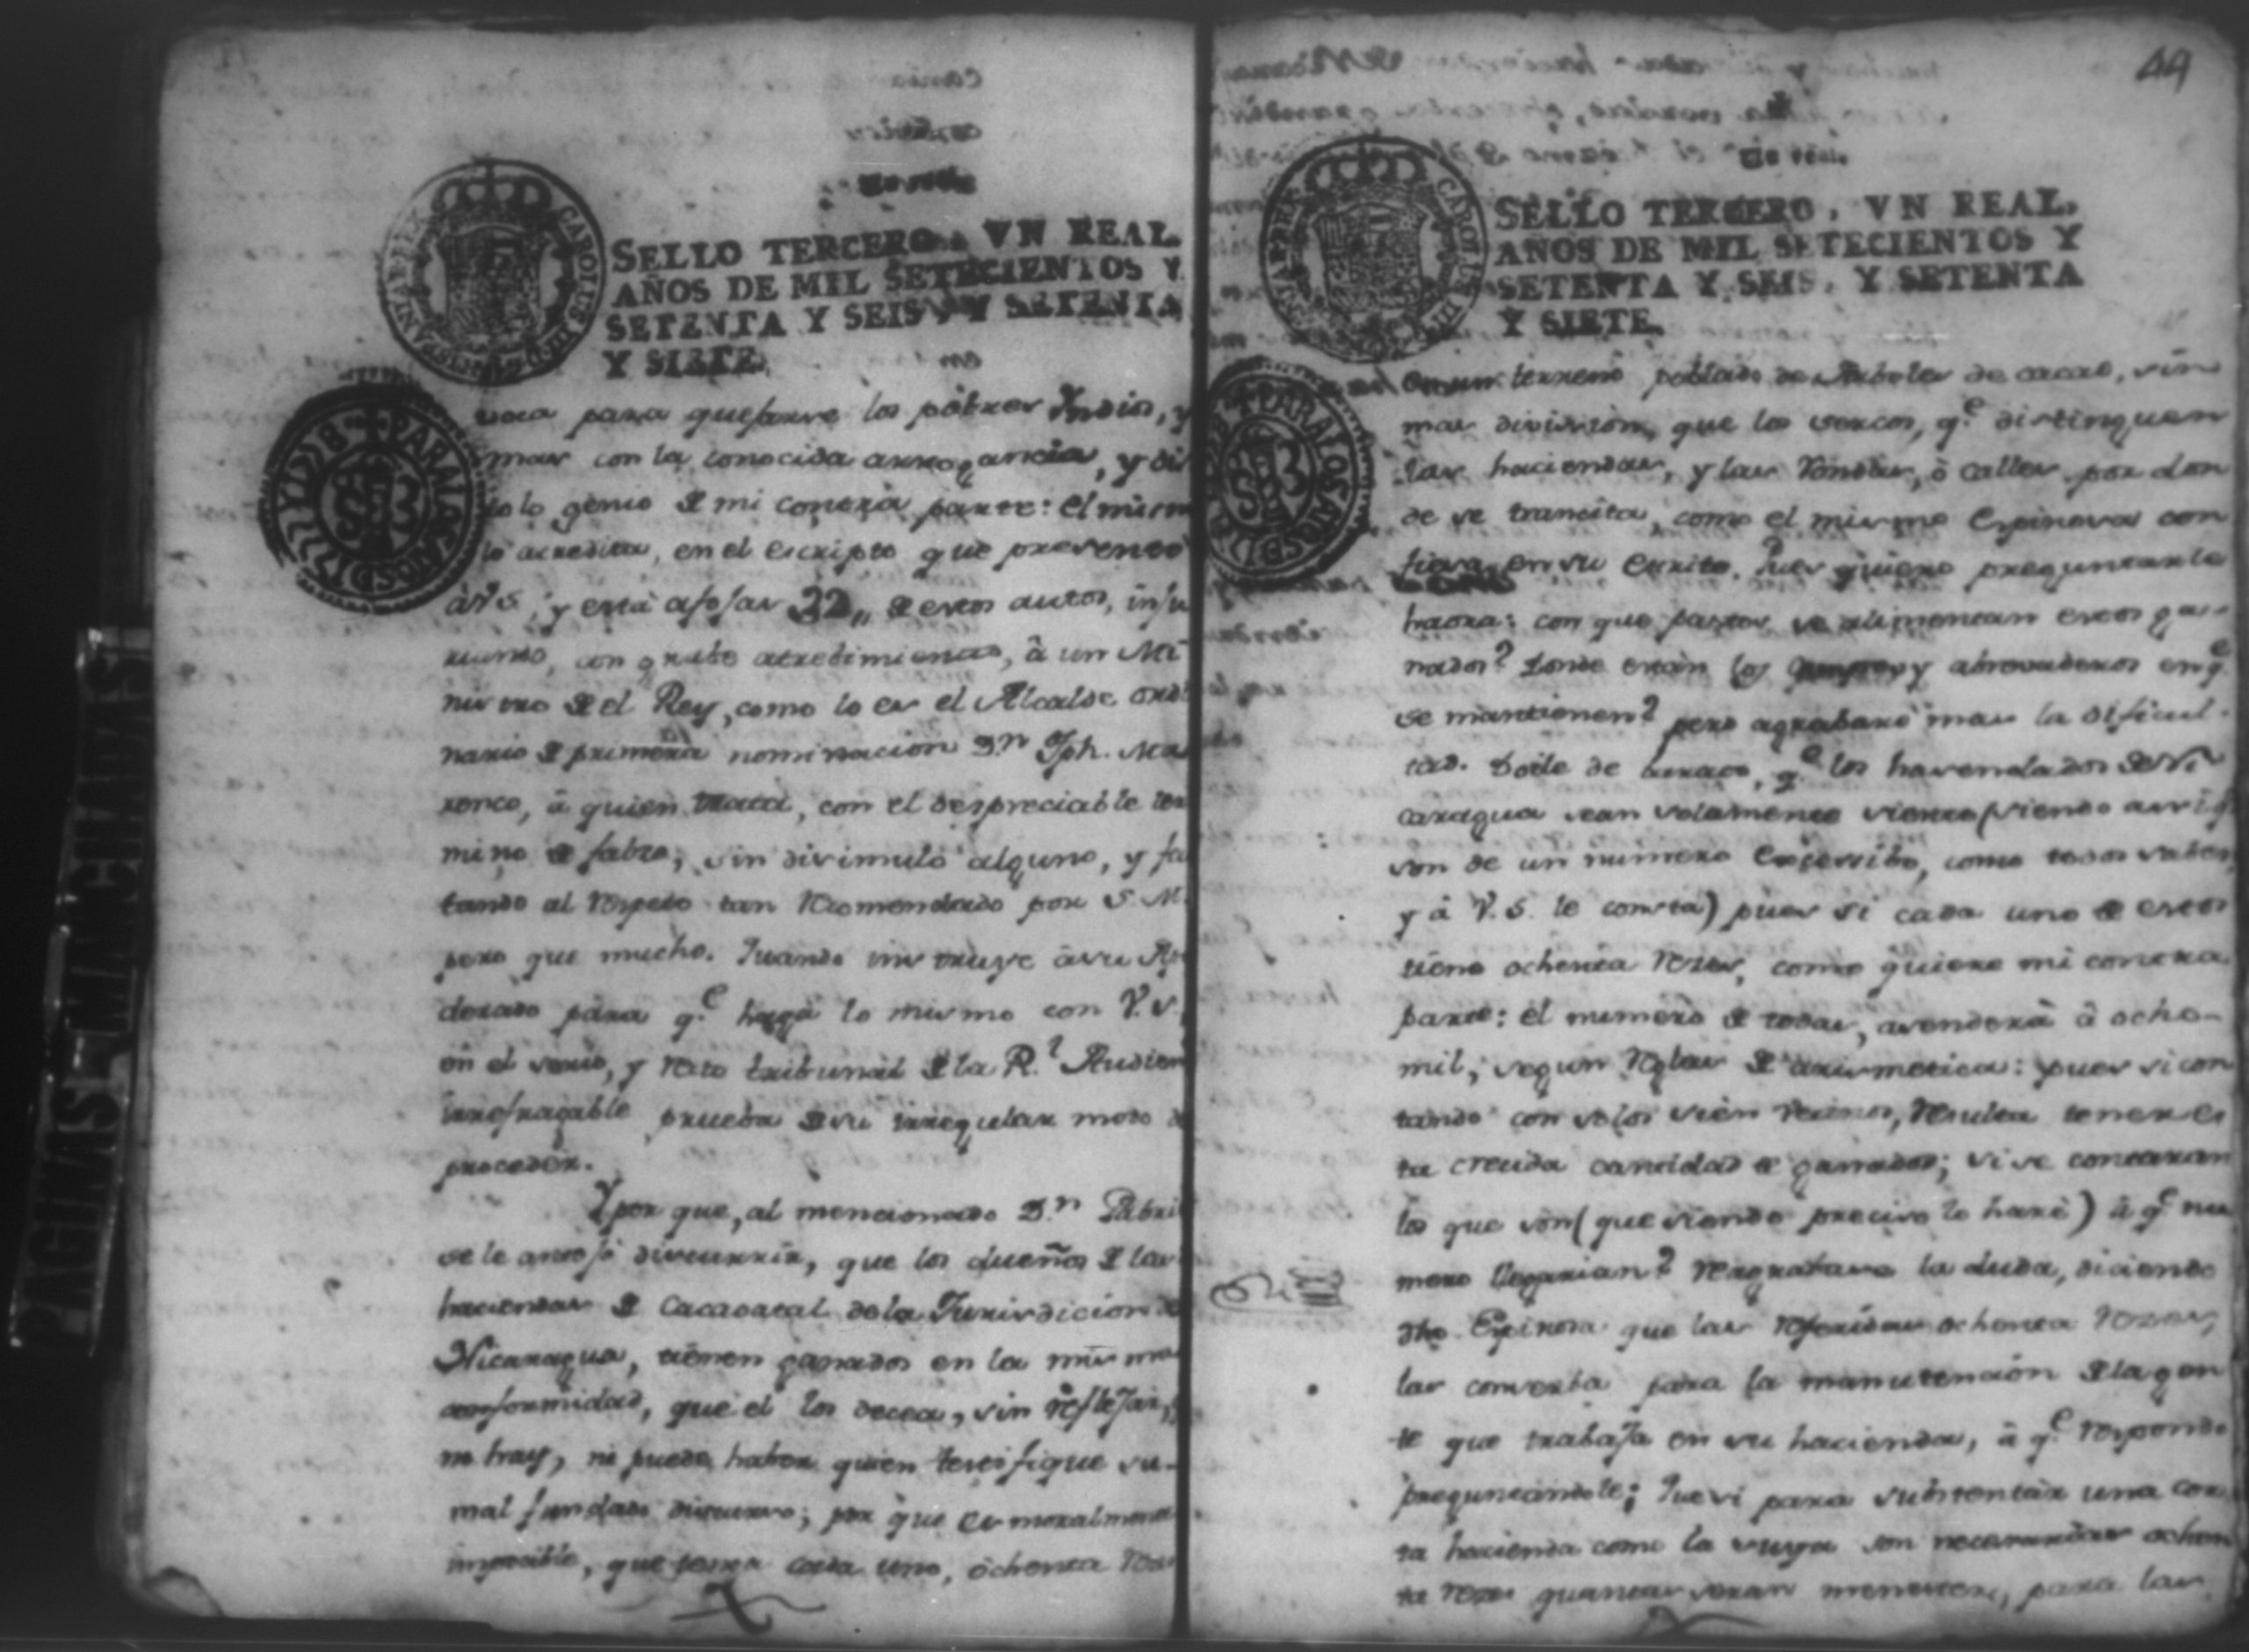 SELLO TERCERO, VN REAL.
AÑOS DE MIL SETECIENTOS Y
SETENTA Y SEIS, Y SETENTA
Y SIETE.
CAROLUS III D G HISPANIAR REX
PARA LOS AÑOS D 1777 Y 1778
para que los pobres Indios, y
mas con la conocida arrogancia, y
genio de mi contra parte: el mism
lo acredita, en el escripto que presentó
à V.S. y està afojas 22,, de estos autos, inju
riando, con grabe atrebimiento, â un Mi
nistro de el Rey, como lo es el Alcalde ordi
nario de primera nominacion Dn. Jph. Ma
renco, â quien trata, con el despreciable ter
mino de falso, sin disimulo alguno, y fal
tando al respeto tan recomendado por S.M.
pero que mucho. Quando instruye âsu Apo
derado para q.e haga lo mismo con V.S.
en el serio, y recto tribunal de la R.l Audien
irrefragable prueba de su irregular modo de
proceder.
Y por que, al mencionado Dn. Gabriel
se le antojó discurrir, que los dueños de las
haciendas de Cacaoatal de la Jurisdicion de
Nicaragua, tienen ganados en la misma
conformidad, que el los decea, sin reflejar,
ni hay, ni puede haber quien testifique su
mal fundado discurso; por que es moralmente
imposible, que tenga cada uno, ochenta Res
49
SELLO TERCERO, VN REAL.
AÑOS DE MIL SETECIENTOS Y
SETENTA Y SEIS, Y SETENTA
Y SIETE.
CAROLUS III D G HISPANIAR REX
PARA LOS AÑOS D 1777 Y 1778
en un terreno poblado de Arboles de cacao, sin
mas division, que los sercos, q.e distinguen
las haciendas, y las rondas, ò calles por don
de se transita, como el mismo Espinosa con
fiesa en su escrito. Pues quiero preguntarle
haora: con que pastos se alimentan estos ga-
nados? donde están los y abrevaderos en q.e
se mantienen? pero agrabaré mas la dificul-
tad. Doile de barato, q.e los hacendados de Ni
caragua sean solamente siento (siendo assi q.e
son de un número excessibo, como todos saben,
y â V.S. le consta) pues si cada uno de estos
tiene ochenta Reses, como quiere mi contra
parte: el numero de todas, asenderà â ocho-
mil, segun reglas de arismetica: pues si con
tando con solos sien vecinos, resulta tener es
ta crecida cantidad de ganados; si se contaran
los que son (que siendo preciso lo haré) â q.e nu
mero llegarian? la duda, diciendo
dho. Espinosa que las referidas ochenta Reses,
las conserba para la manutención de la gen
te que trabaja en su hacienda, â q.e respondo
preguntandole; que si para substentar una cor
ta hacienda como la suya son necesarias ochen
ta Reses quantas seran menester, para las